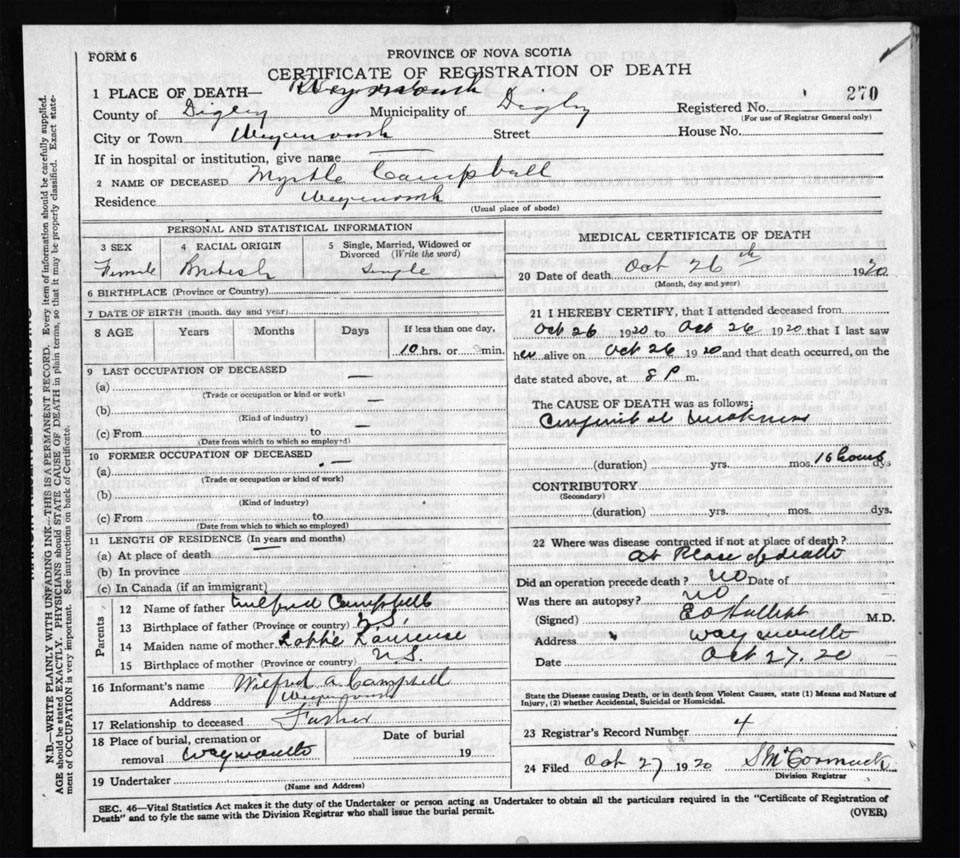 FORM 6
PROVINCE OF NOVA SCOTIA
CERTIFICATE OF REGISTRATION OF DEATH
1 PLACE OF DEATH—
County of Digby Municipality of Digby Registered No. 270
(For use of Registrar General only)
City or Town Weymouth Street House No.
If in hospital or institution, give name —
2 NAME OF DECEASED Myrtle Campbell
Residence Weymouth
(Usual place of abode)
PERSONAL AND STATISTICAL INFORMATION
3 SEX 4 RACIAL ORIGIN 5 Single, Married, Widowed or Divorced (Write the word)
Female British Single
6 BIRTHPLACE (Province or Country)
7 DATE OF BIRTH (month, day and year)
8 AGE Years Months Days If less than one day,
10 hrs. or min.
9 LAST OCCUPATION OF DECEASED
(a) —
(Trade or occupation or kind or work)
(b) —
(Kind of industry)
(c) From to —
(Date from which to which so employed)
10 FORMER OCCUPATION OF DECEASED
(a) —
(Trade or occupation or kind of work)
(b)
(Kind of industry)
(c) From to
(Date from which to which so employed)
11 LENGTH OF RESIDENCE (In years and months)
(a) At place of death —
(b) In province
(c) In Canada (if an immigrant)
Parents
12 Name of father Wilfred Campbell
13 Birthplace of father (Province or country) N.S.
14 Maiden name of mother
15 Birthplace of mother (Province or country) N.S.
16 Informant's name Wilfred A Campbell
Address Weymouth
17 Relationship to deceased Father
18 Place of burial, cremation or removal Weymouth
Date of burial 19
19 Undertaker
(Name and Address)
MEDICAL CERTIFICATE OF DEATH
20 Date of death Oct 26th 1920
(Month, day and year)
21 I HEREBY CERTIFY, that I attended deceased from
Oct 26 1920 to Oct 26 1920 that I last saw
her alive on Oct 26 1920 and that death occurred, on the
date stated above, at 8 P m.
The CAUSE OF DEATH was as follows:
Congenital weakness
(duration) yrs. mos. 16 hours dys
CONTRIBUTORY
(Secondary)
(duration) yrs. mos. dys.
22 Where was disease contracted if not at place of death?
at Place of death
Did an operation precede death? NO Date of
Was there an autopsy? NO
(Signed) M.D.
Address Weymouth
Date Oct 27. 20
State the Disease causing Death, or in death from Violent Causes, state (1) Means and Nature of
Injury, (2) whether Accidental, Suicidal or Homicidal.
23 Registrar's Record Number 4
24 Filed Oct 27 1920 S McCormack
Division Registrar
SEC. 46—Vital Statistics Act makes it the duty of the Undertaker or person acting as Undertaker to obtain all the particulars required in the "Certificate of Registration of
Death" and to fyle the same with the Division Registrar who shall issue the burial permit.
(OVER)
N.B.—WRITE PLAINLY WITH UNFADING INK—THIS IS A PERMANENT RECORD. Every item of information should be carefully supplied.
AGE should be stated EXACTLY. PHYSICIANS should STATE CAUSE OF DEATH in plain terms, so that it may be properly classified. Exact statement of OCCUPATION is very important. See instructions on back of Certificate.